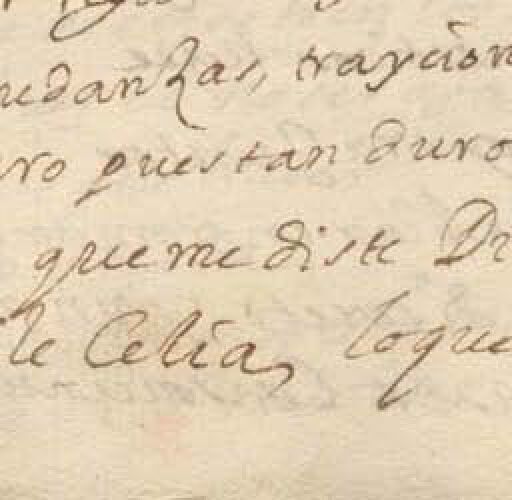 udanzas, traycion
ro questan duro
que me diste Di
le Celia, loque